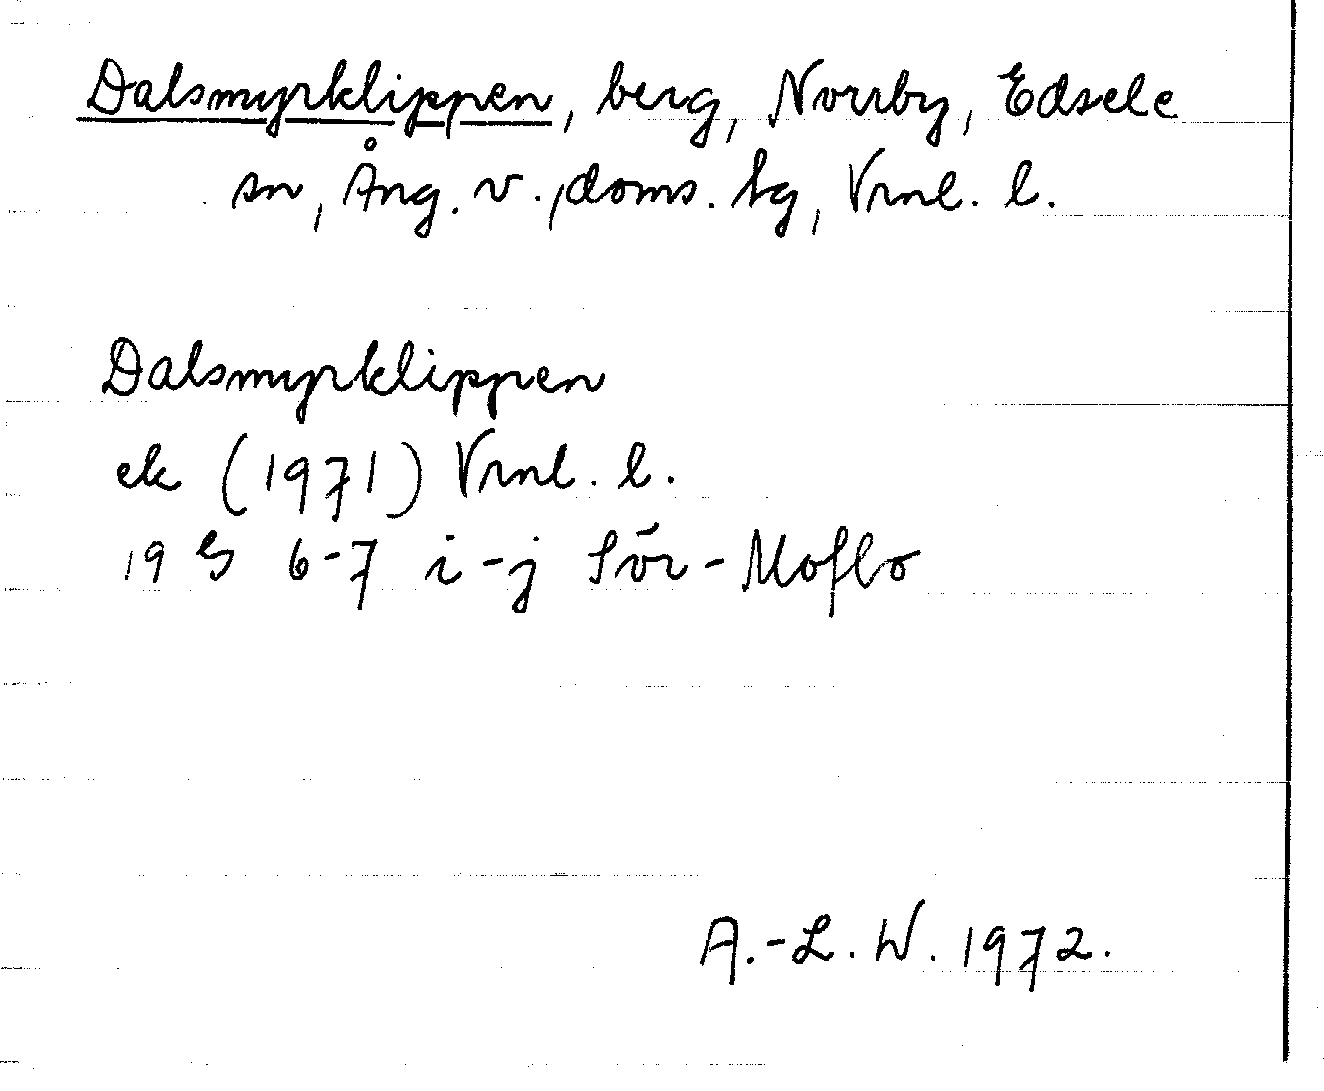 Dalsmyrklippen, berg, Norrby, Edsele
sn, Ång. v. doms. hg, Vrnl. l.
Dalsmyrklippen
ek (1971) Vrnl. l.
19 G 6-7 i-j Sör-Moflo
A.-L. W. 1972.